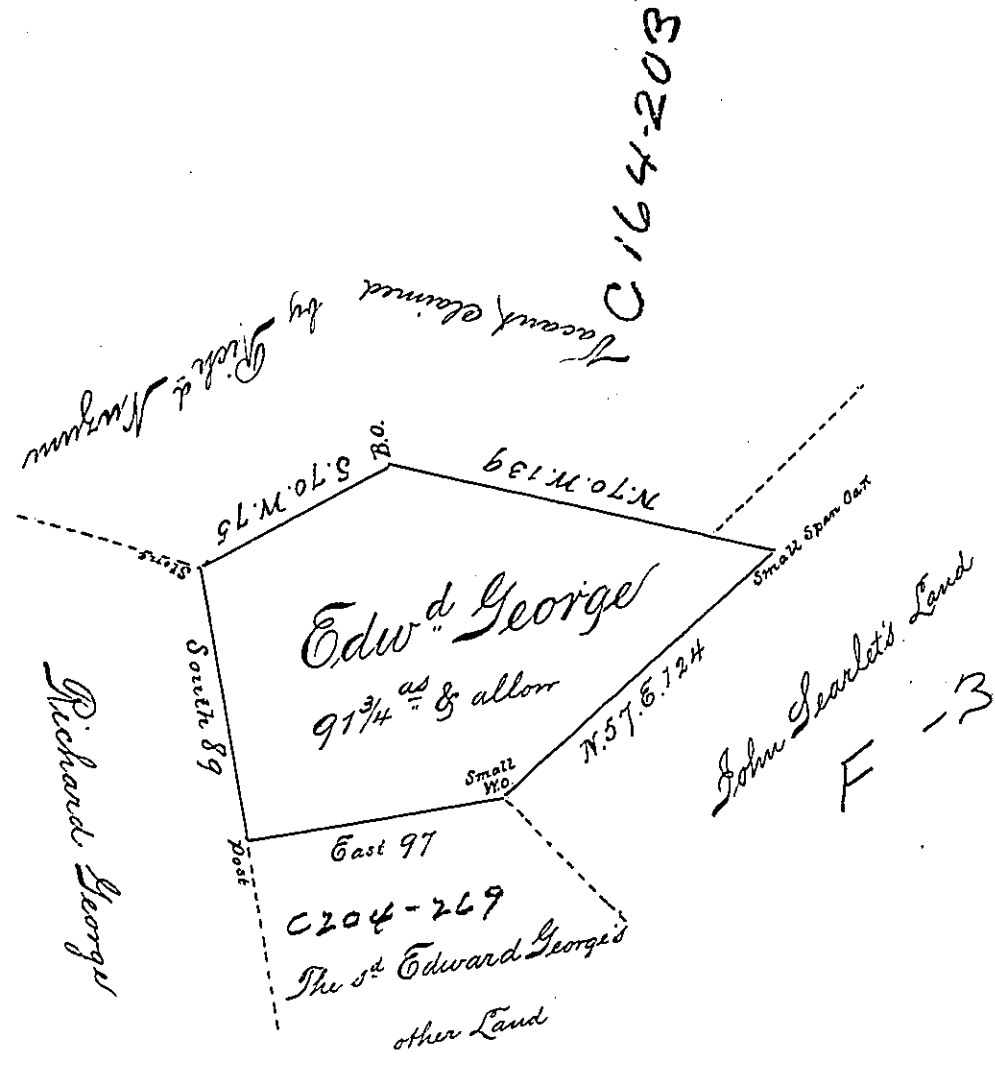 C 164-203
Vacant, claimed by Rich.d Nuzum
B.O.
S.70.W.75
N.70.W.139
Stones
Small Span Oak
Edw.d George
91 3/4 as & allow
South 89
N.57.E.124
Richard George
John Scarlet's Land
F -3
Small
W.O.
Post
East 97
C204-269
The sd Edward George's
other Land